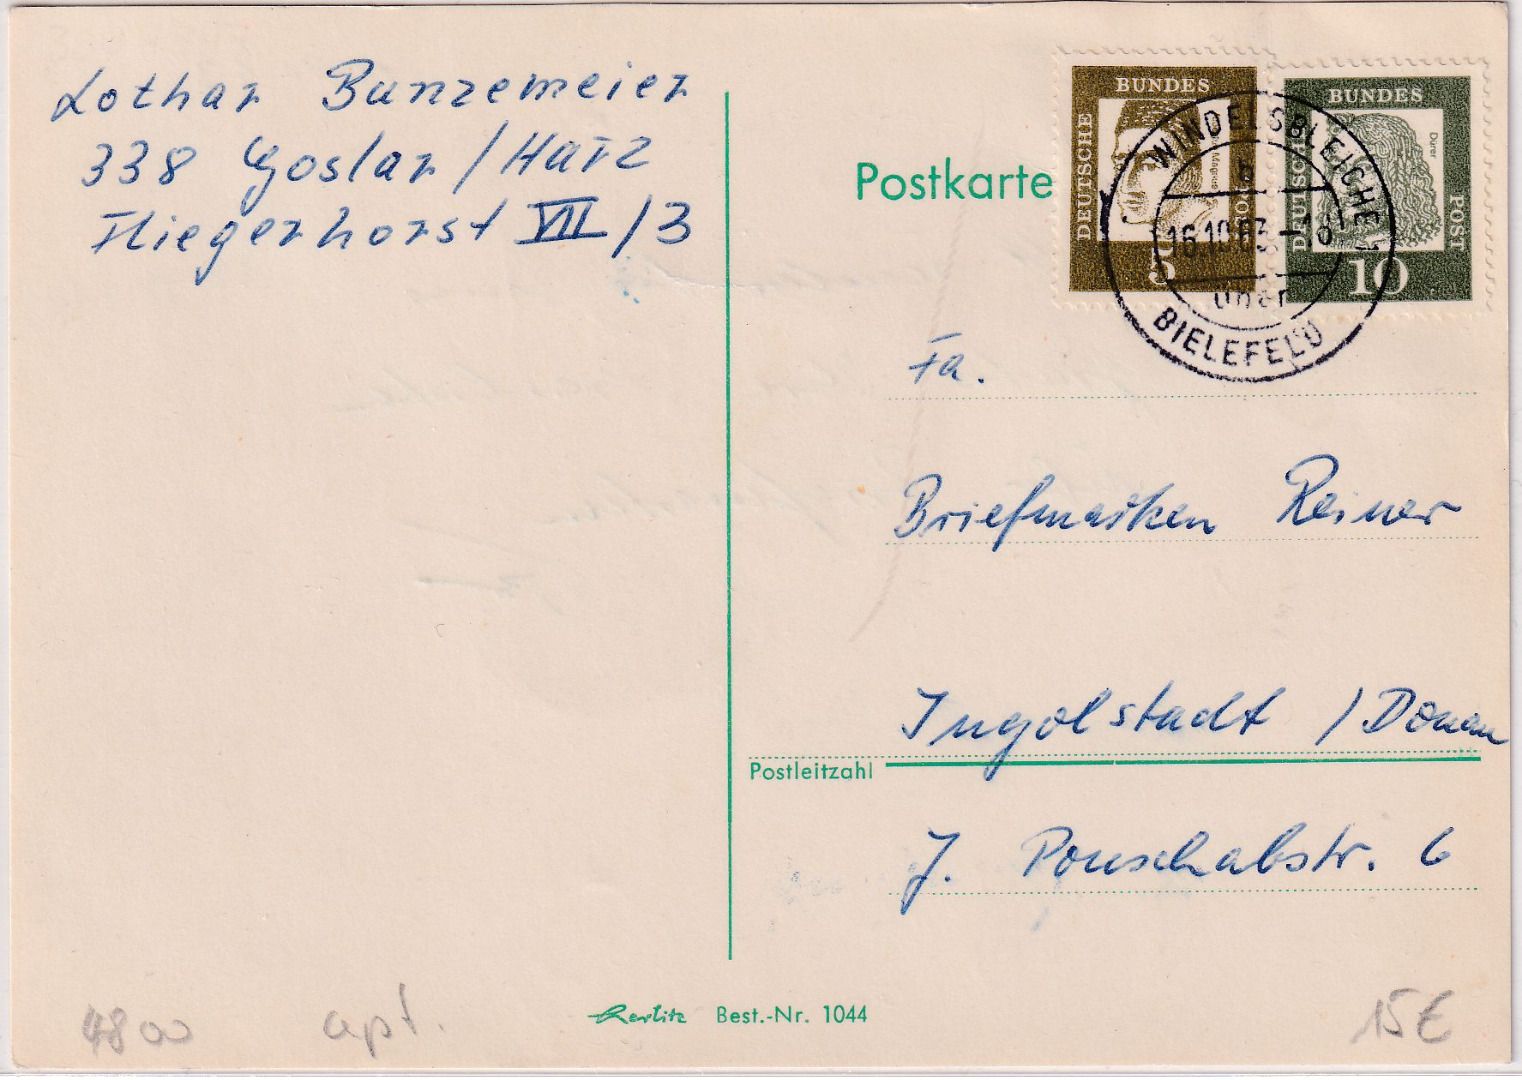 Lothar Bunzemeier
338 Goslar / Harz
Fliegerhorst VII / 3
Postkarte
DEUTSCHE BUNDES POST
5
DEUTSCHE BUNDES POST
Dürer
10
WINDELSBLEICHE
b
16.10.63
über
BIELEFELD
Fa.
Briefmarken Reiner
Ingolstadt / Donau
Postleitzahl
J. Ponschabstr. 6
Herlitz Best.-Nr. 1044
4800 apt.
15€